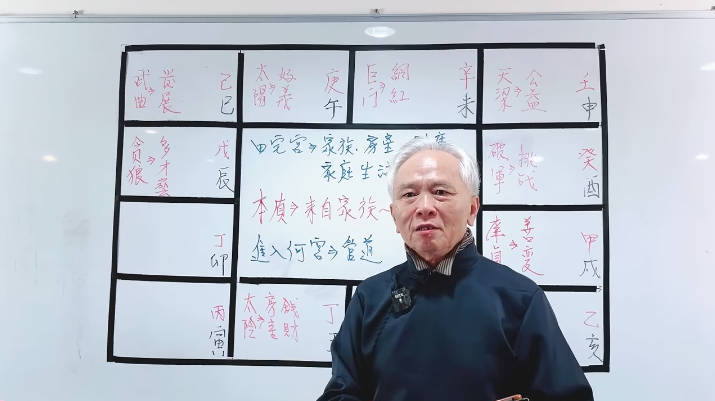 武曲⇒發展 己巳
太陽⇒好義 庚午
巨門⇒網紅 辛未
天梁⇒公益 壬申
貪狼⇒多才藝 戊辰
田宅宮⇒家族.房產
家庭生活
本質⇒來自家族~
進入何宮⇒管道
破軍⇒挑戰 癸酉
丁卯
廉貞⇒善變 甲戌
丙寅
太陰⇒錢財 丁
乙亥